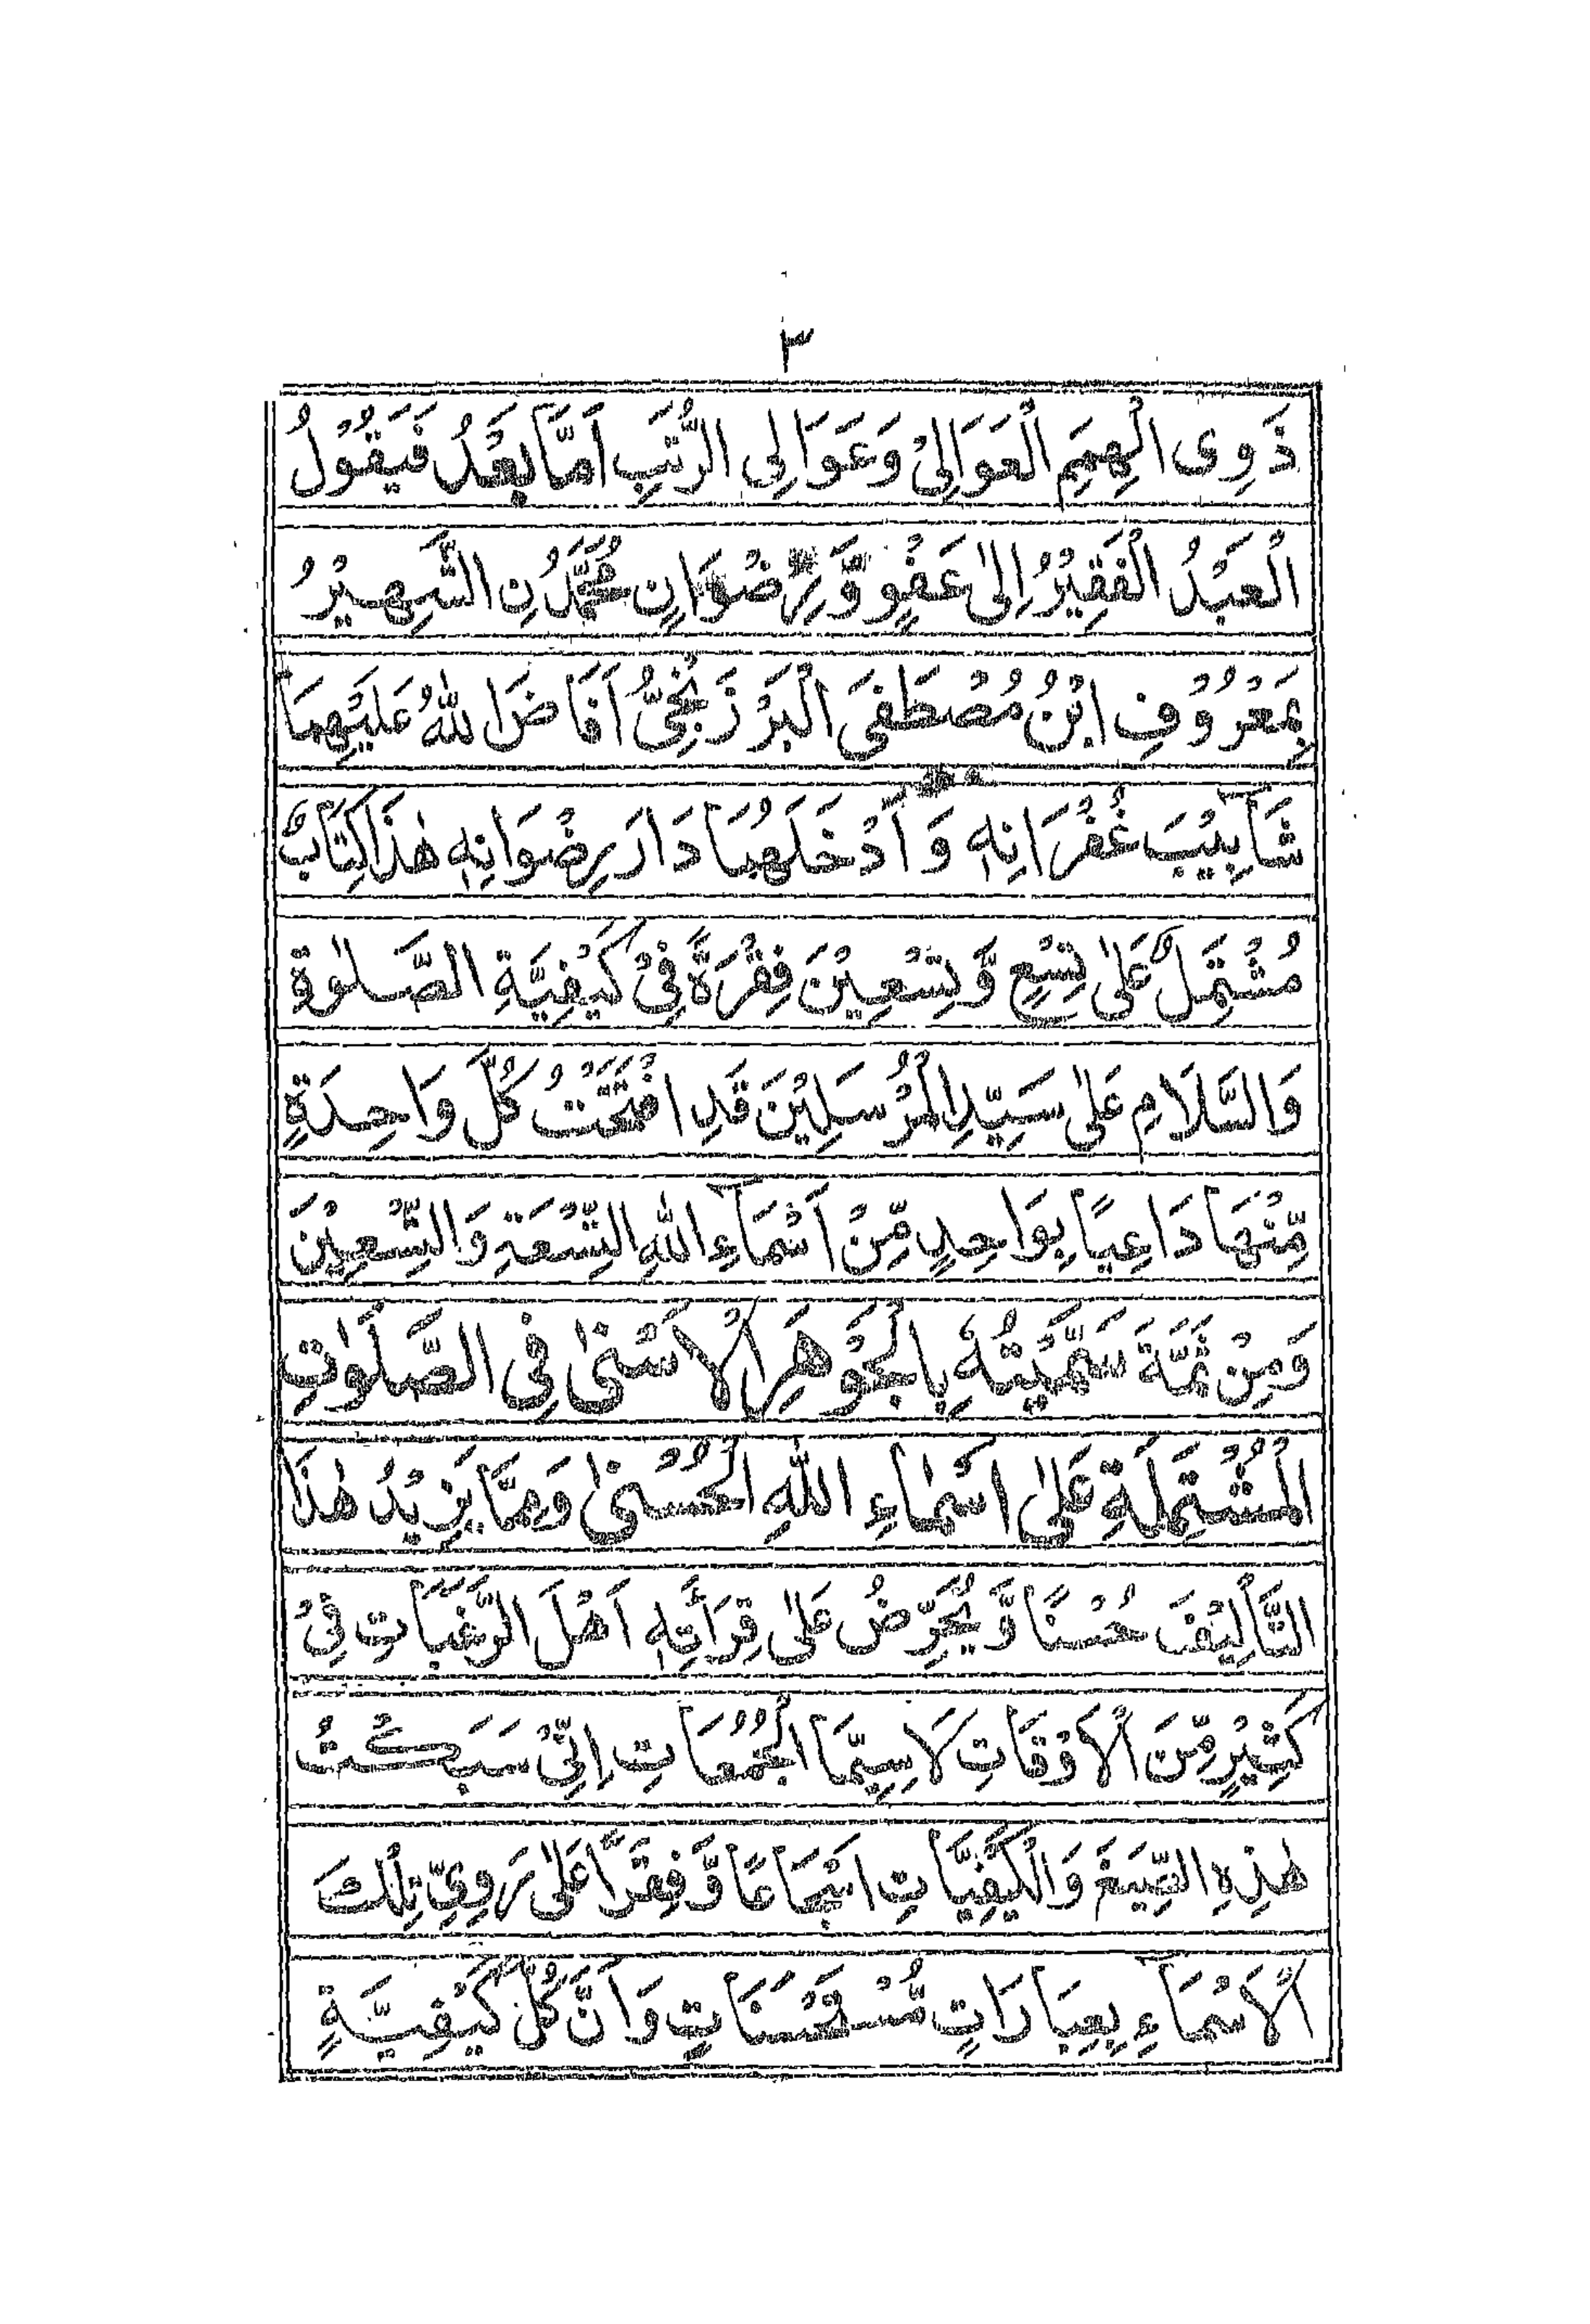 ٣
ذَوِى الْهِمَمِ الْعَوَالِىْ وَعَوَالِى الرُّتَبِ اَمَّا بَعْدُ فَيَقُوْلُ
الْعَبْدُ الْفَقِيْرُ اِلٰى عَفْوٍ وَّرِضْوَانٍ مُحَمَّدُ نِ الشَّهِيْرُ
بِمَعْرُوْفِ ابْنُ مُصْطَفَى الْبَرْزَنْجِىُّ اَفَاضَ اللهُ عَلَيْهِمَا
شَاٰبِيْبَ غُفْرَانِهٖ وَاَدْخَلَهُمَا دَارَ رِضْوَانِهٖ هٰذَا كِتَابٌ
مُشْتَمِلٌ عَلٰى تِسْعٍ وَّتِسْعِيْنَ فِقْرَةً فِىْ كَيْفِيَّةِ الصَّلٰوةِ
وَالسَّلَامِ عَلٰى سَيِّدِ الْمُرْسَلِيْنَ قَدِ افْتَتَحْتُ كُلَّ وَاحِدَةٍ
مِّنْهَا دَاعِيًا بِوَاحِدٍ مِّنْ اَسْمَآءِ اللهِ التِّسْعَةِ وَالتِّسْعِيْنَ
وَمِنْ ثَمَّةَ سَمَّيْتُهٗ بِالْجَوْهَرِ الْاَسْنٰى فِى الصَّلَوٰتِ
الْمُشْتَمِلَةِ عَلٰى اَسْمَاءِ اللهِ الْحُسْنٰى وَمِمَّا يَزِيْدُ هٰذَا
التَّأْلِيْفَ حُسْنًا وَّيُحَرِّضُ عَلٰى قِرَأَتِهٖ اَهْلَ الرَّغَبَاتِ فِىْ
كَثِيْرٍ مِّنَ الْاَوْقَاتِ لَاسِيَّمَا الْجُمُعَاتِ اِنِّىْ سَبَكْتُ
هٰذِهِ الصِّيَغَ وَالْكَيْفِيَّاتِ اَسْجَاعًا وَّفِقَرًا عَلٰى رَوِىِّ تِلْكَ
الْاَسْمَآءِ بِعِبَارَاتٍ مُّسْتَحْسَنَاتٍ وَاَنَّ كُلَّ كَيْفِيَّةٍ